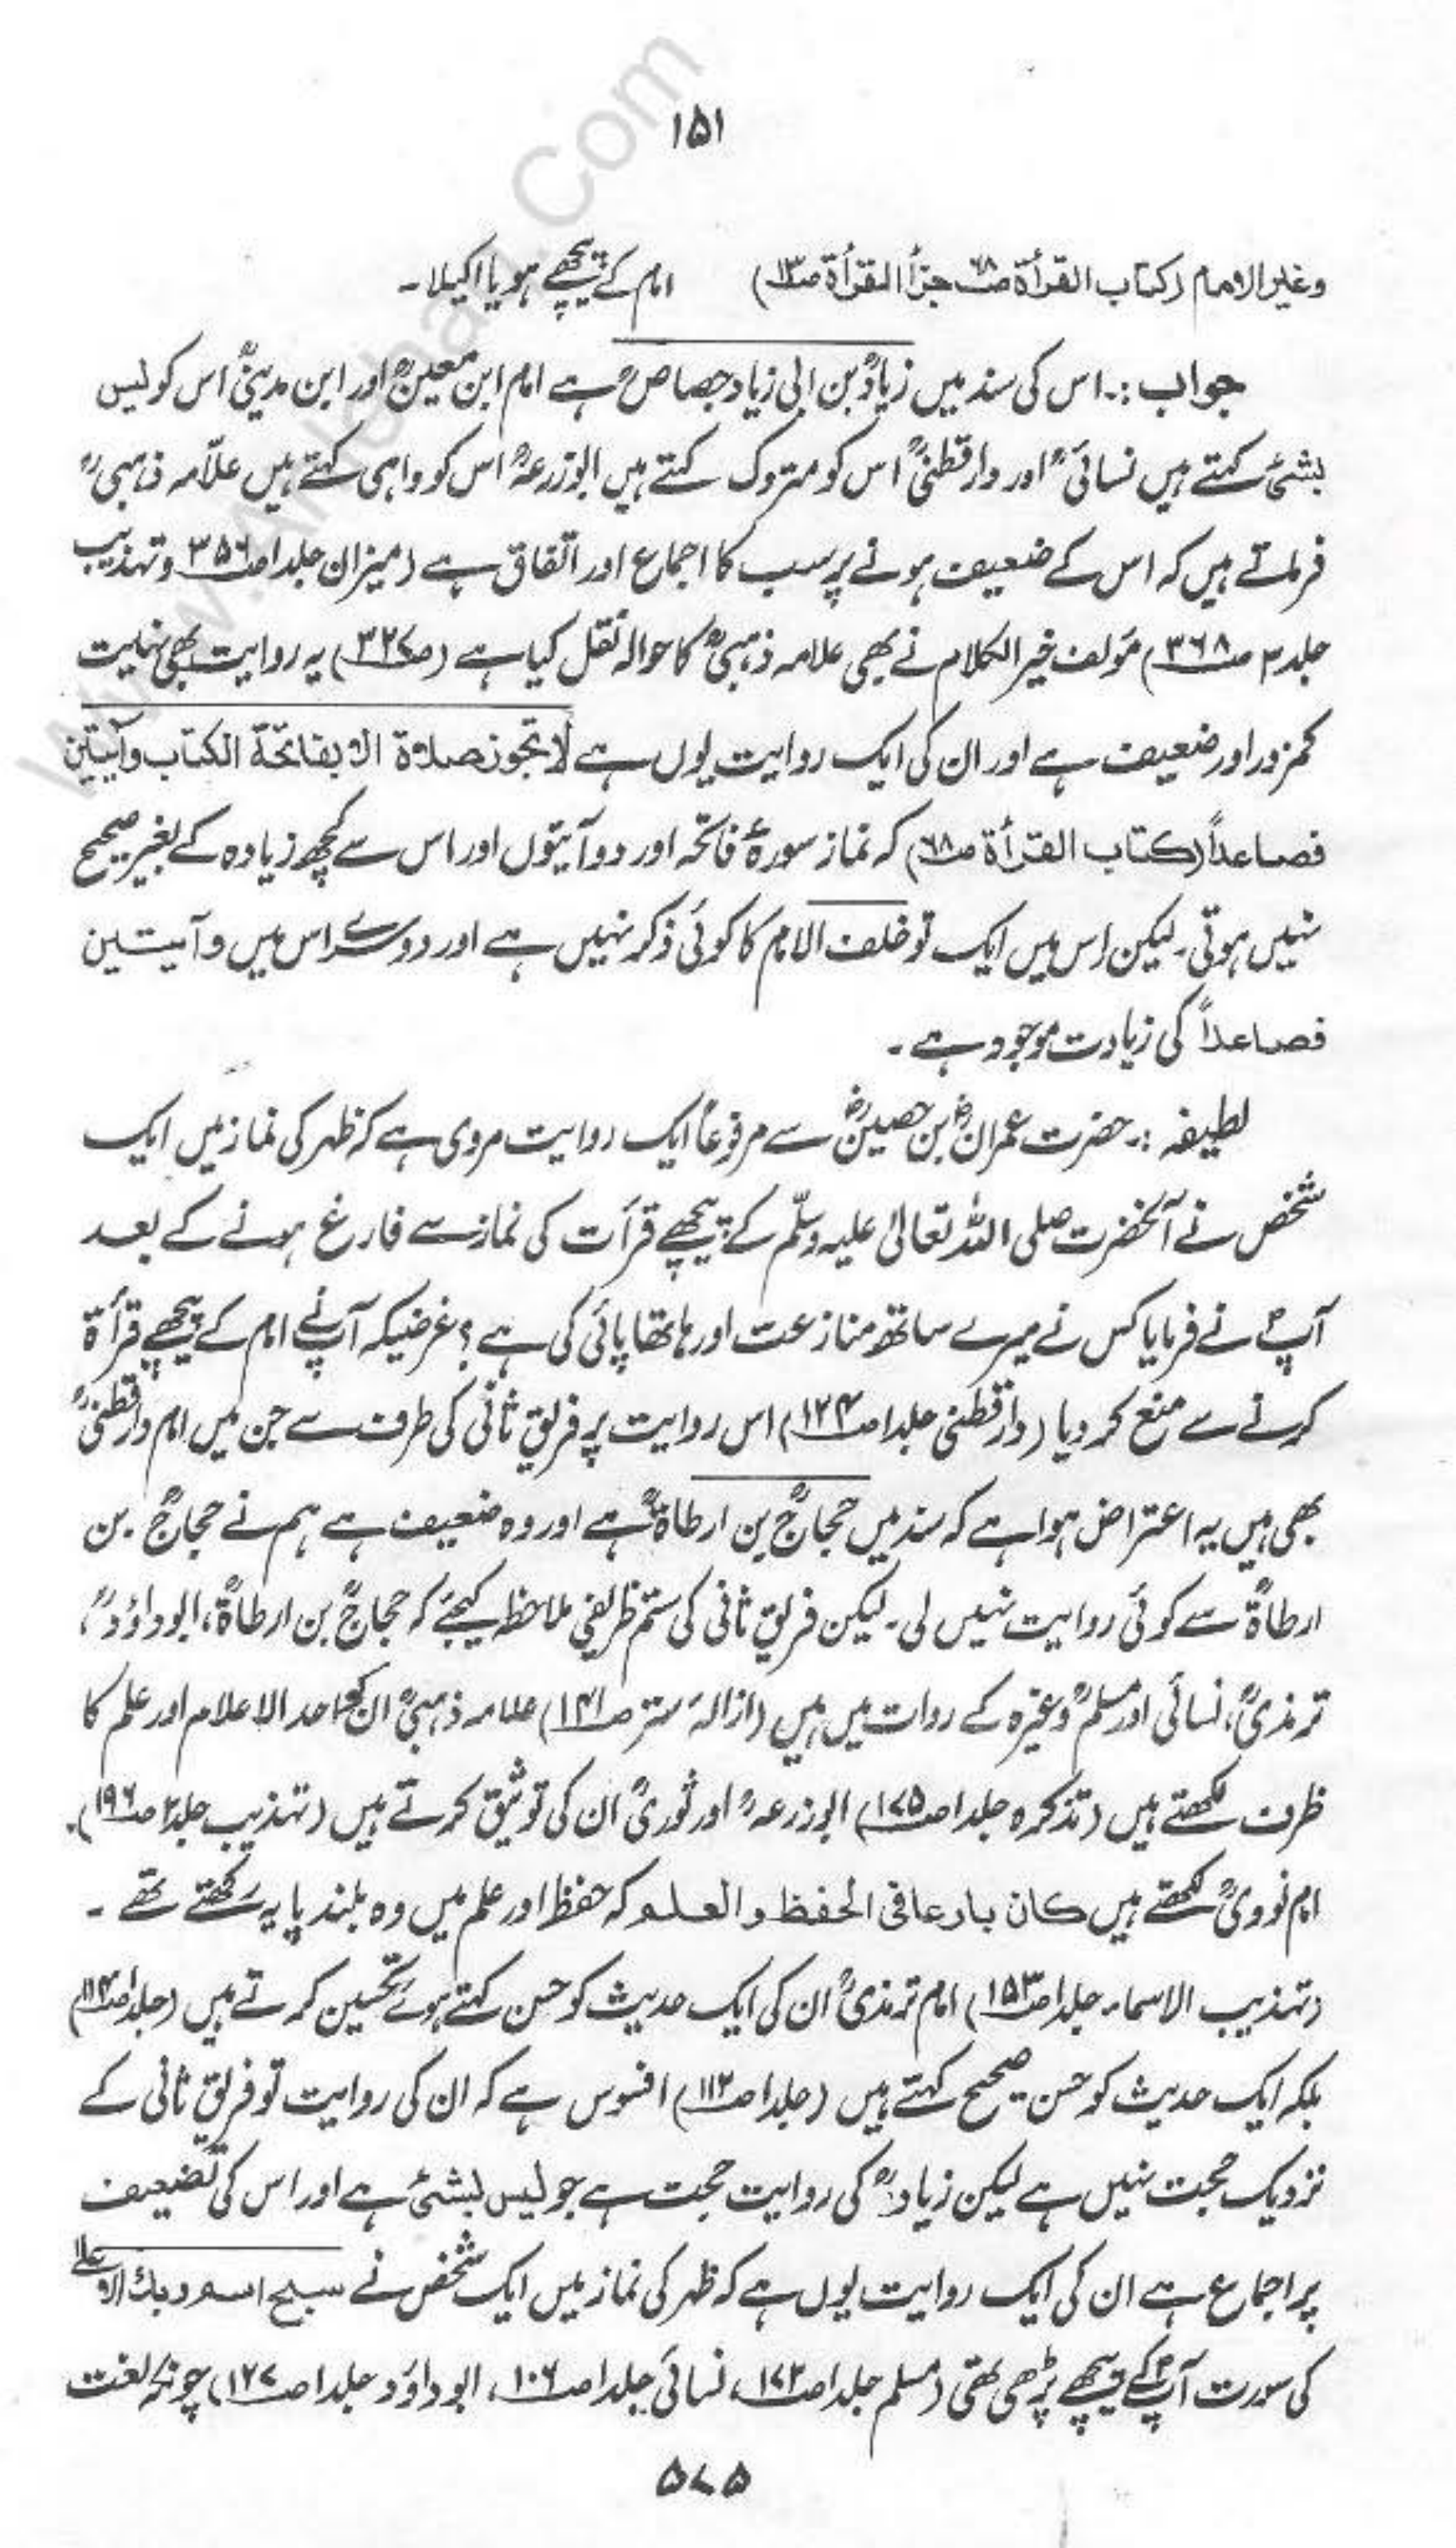 ۱۵۱
وغیر الامام (کتاب القرأۃ ص۶۸ جزأ القرأۃ ص۱۳) امام کے پیچھے ہو یا اکیلا۔
جواب :۔ اس کی سند میں زیادؒ بن ابی زیاد جصاصؒ ہے امام ابن معینؒ اور ابن مدینیؒ اس کو لیس
بشیٔ کہتے ہیں نسائیؒ اور دارقطنیؒ اس کو متروک کہتے ہیں ابوزرعہؒ اس کو واہی کہتے ہیں علّامہ ذہبیؒ
فرماتے ہیں کہ اس کے ضعیف ہونے پر سب کا اجماع اور اتفاق ہے (میزان جلد۱ ص۳۵۶ وتہذیب
جلد۳ ص۳۶۸) مؤلف خیر الکلام نے بھی علامہ ذہبیؒ کا حوالہ نقل کیا ہے (ص۳۲۷) یہ روایت بھی نہایت
کمزور اور ضعیف ہے اور ان کی ایک روایت یوں ہے لا تجوز صلاۃ الا بفاتحۃ الکتاب وآیتین
فصاعداً (کتاب القرأۃ ص۶۸) کہ نماز سورۂ فاتحہ اور دو آیتوں اور اس سے کچھ زیادہ کے بغیر صحیح
نہیں ہوتی۔ لیکن اس میں ایک تو خلف الامام کا کوئی ذکر نہیں ہے اور دوسرے اس میں وآیتین
فصاعداً کی زیادت موجود ہے۔
لطیفہ :۔ حضرت عمرانؓ بن حصینؓ سے مرفوعاً ایک روایت مروی ہے کہ ظہر کی نماز میں ایک
شخص نے آنحضرت صلی اللہ تعالیٰ علیہ وسلّم کے پیچھے قرأت کی نماز سے فارغ ہونے کے بعد
آپؐ نے فرمایا کس نے میرے ساتھ منازعت اور ہاتھا پائی کی ہے؟ غرضیکہ آپؐ نے امام کے پیچھے قرأۃ
کرنے سے منع کر دیا (دارقطنی جلد۱ ص۱۲۴) اس روایت پر فریق ثانی کی طرف سے جن میں امام دارقطنیؒ
بھی ہیں یہ اعتراض ہوا ہے کہ سند میں حجاجؒ بن ارطاۃؒ ہے اور وہ ضعیف ہے ہم نے حجاجؒ بن
ارطاۃؒ سے کوئی روایت نہیں لی۔ لیکن فریق ثانی کی ستم ظریفی ملاحظہ کیجئے کہ حجاجؒ بن ارطاۃؒ، ابوداؤدؒ،
ترمذیؒ، نسائی اور مسلمؒ وغیرہ کے روات میں ہیں (ازالۂ ستر ص۱۴۱) علامہ ذہبیؒ ان کو احد الاعلام اور علم کا
ظرف لکھتے ہیں (تذکرہ جلد۱ ص۱۷۵) ابوزرعہؒ اور ثوریؒ ان کی توثیق کرتے ہیں (تہذیب جلد۲ ص۱۹۶)۔
امام نوویؒ لکھتے ہیں کان بارعا فی الحفظ والعلم کہ حفظ اور علم میں وہ بلند پایہ رکھتے تھے۔
(تہذیب الاسماء جلد۱ ص۱۵۳) امام ترمذیؒ ان کی ایک حدیث کو حسن کہتے ہوئے تحسین کرتے ہیں (جلد۱ ص۱۱۴)
بلکہ ایک حدیث کو حسن صحیح کہتے ہیں (جلد۱ ص۱۱۲) افسوس ہے کہ ان کی روایت تو فریق ثانی کے
نزدیک حجت نہیں ہے لیکن زیادؒ کی روایت حجت ہے جو لیس بشیٔ ہے اور اس کی تضعیف
پر اجماع ہے ان کی ایک روایت یوں ہے کہ ظہر کی نماز میں ایک شخص نے سبح اسم ربک الاعلیٰ
کی سورت آپؐ کے پیچھے پڑھی تھی (مسلم جلد۱ ص۱۷۲، نسائی جلد۱ ص۱۰۶، ابوداؤد جلد۱ ص۱۲۷) چونکہ لغت
۵۷۵